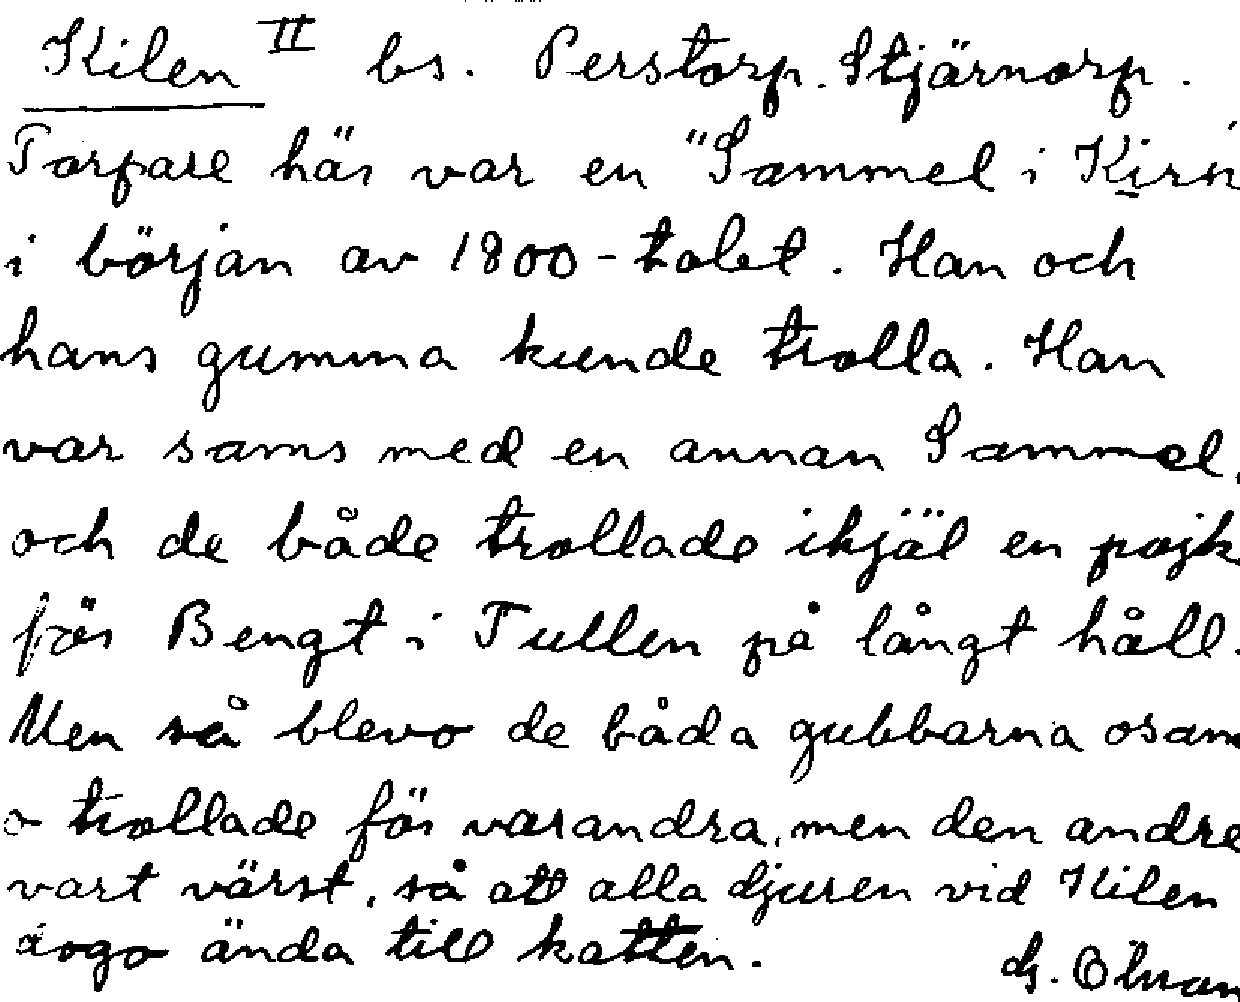 Kilen II bs. Perstorp. Stjärnorp.
Torpare här var en "Sammel i Kirn
i början av 1800-talet. Han och
hans gumma kunde trolla. Han
var sams med en annan Sammel,
och de både trollade ihjäl en pojk
för Bengt i Tullen på långt håll.
Men så blevo de båda gubbarna osam
o trollade för varandra, men den andre
vart värst, så att alla djuren vid Kilen
dogo ända till katten.